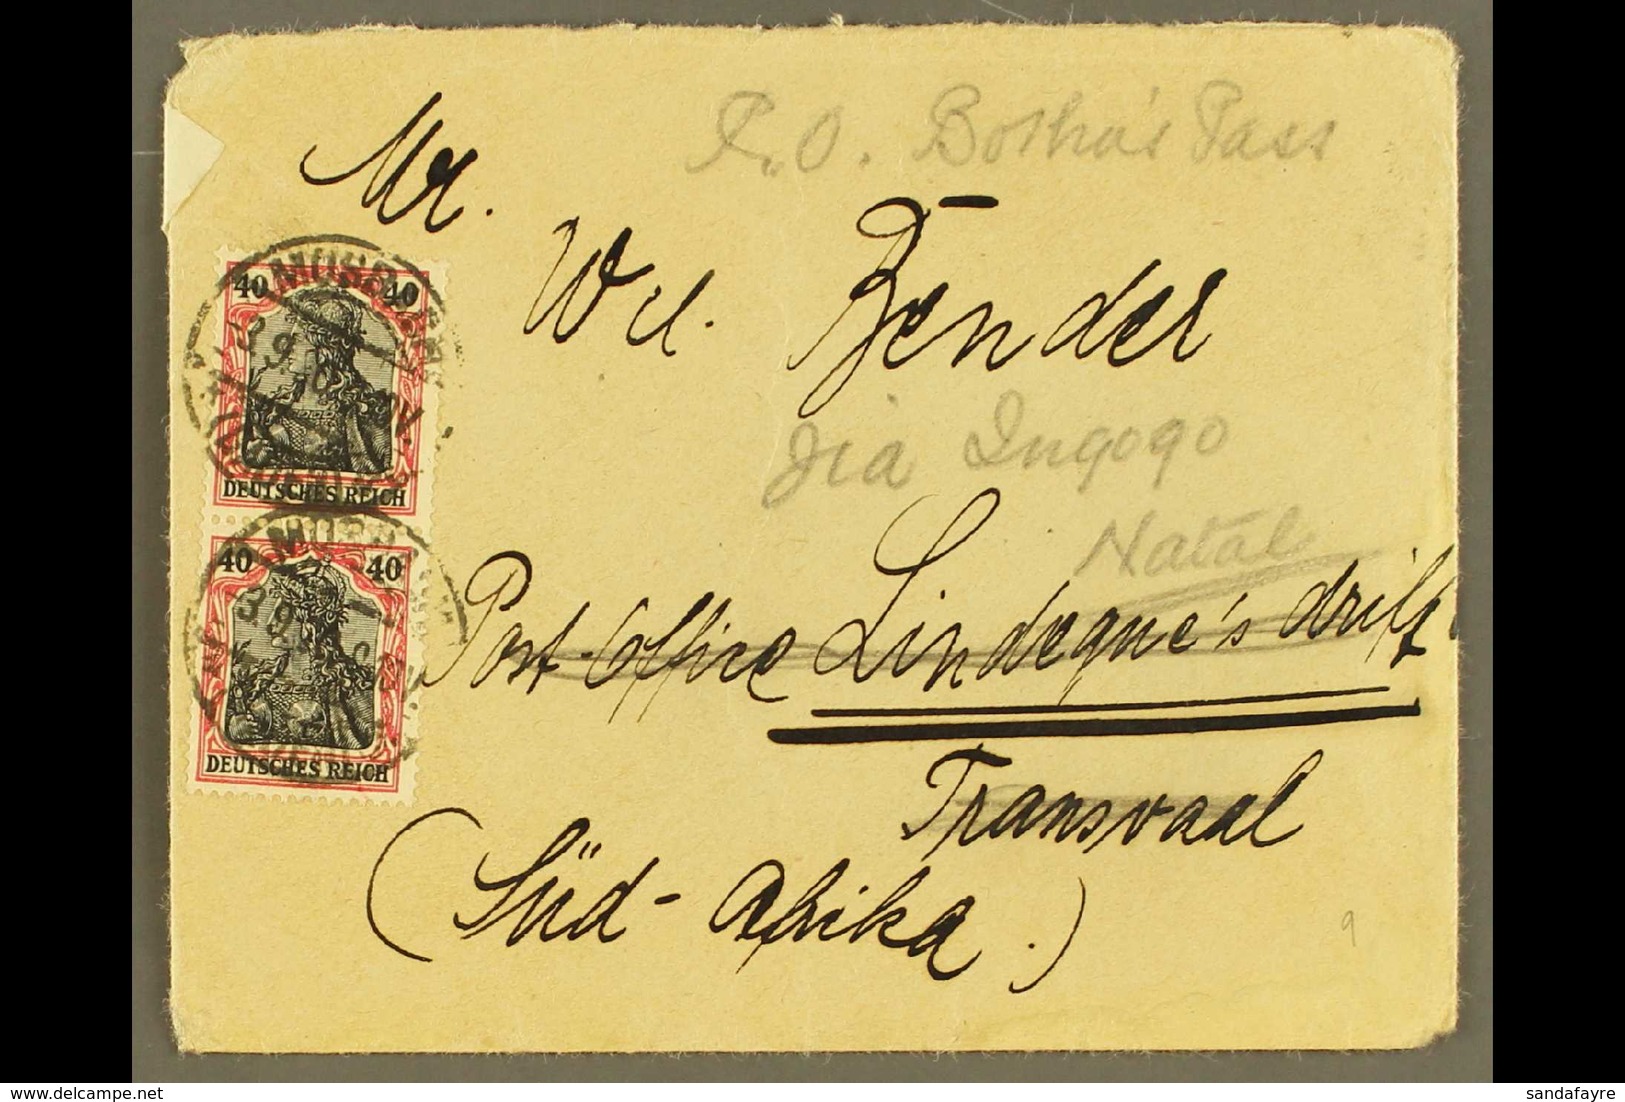 P.O. Botha's Pass
Mr.
Wil. Zender
via Ingogo
Natal
Post-Office Lindeque's drift
Transvaal
(Süd-Afrika.)
40 40
DEUTSCHES REICH
40 40
DEUTSCHES REICH
9
sandafayre